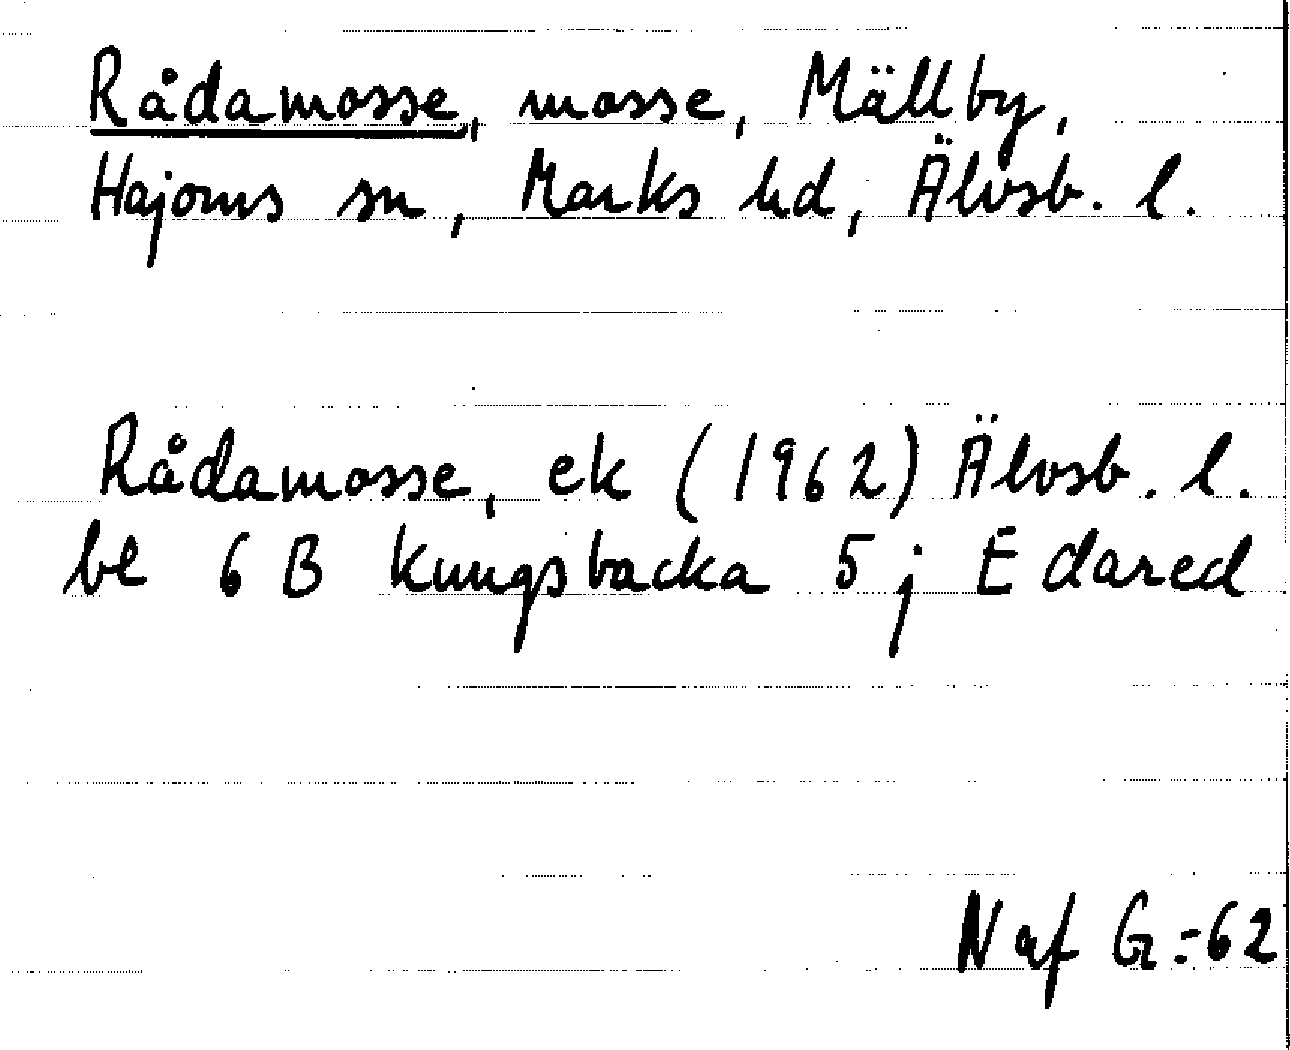 Rådamosse, mosse, Mällby,
Hajoms sn, Marks hd, Älvsb. l.
Rådamosse, ek (1962) Älvsb. l.
bl 6 B Kungsbacka 5 j E dared
N af G:62